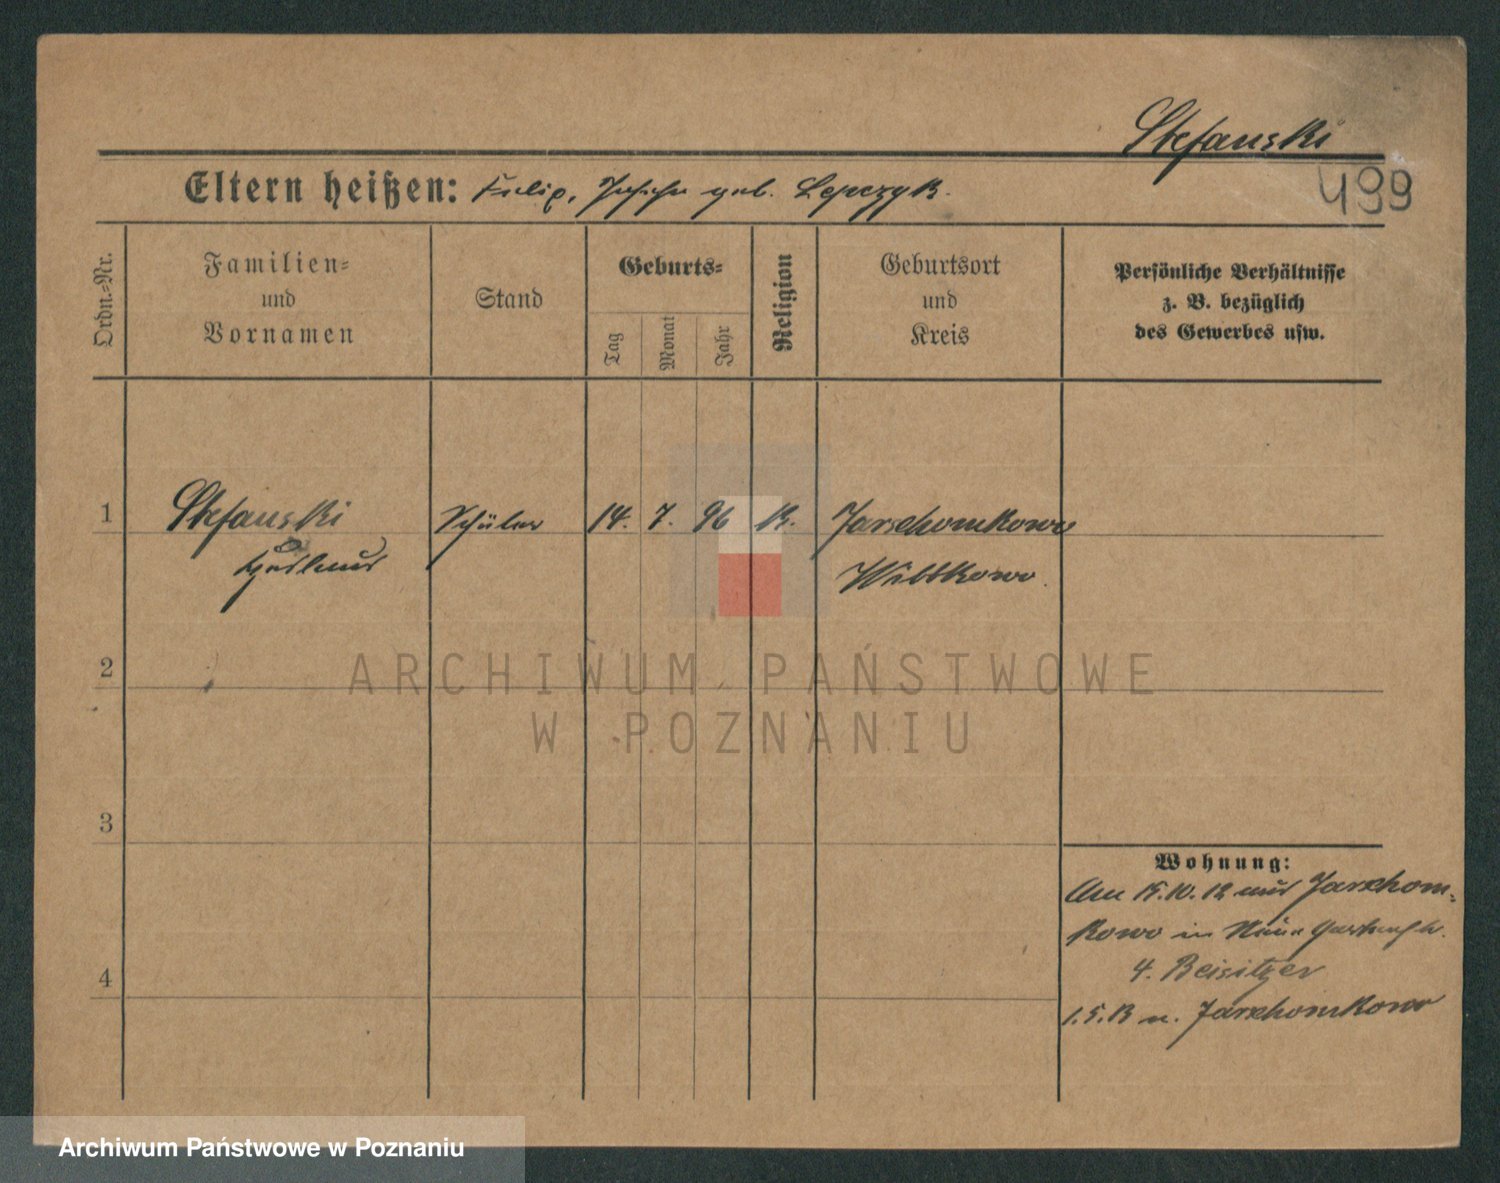 Stefanski
499
Eltern heißen: Filip, geb. Lepczyk.
Ordn.-Nr.
Familien-
und
Vornamen
Stand
Geburts-
Tag
Monat
Jahr
Religion
Geburtsort
und
Kreis
Persönliche Verhältnisse
z. B. bezüglich
des Gewerbes usw.
1 Stefanski Schüler 14. 7. 96 K. Jarschomkowo
Wittkowo.
2
ARCHIWUM PAŃSTWOWE
W POZNANIU
3
4
Wohnung:
Am 15.10.12 aus Jarschom-
kowo in
4. Beisitzer
1.5.13 n. Jarschomkowo
Archiwum Państwowe w Poznaniu